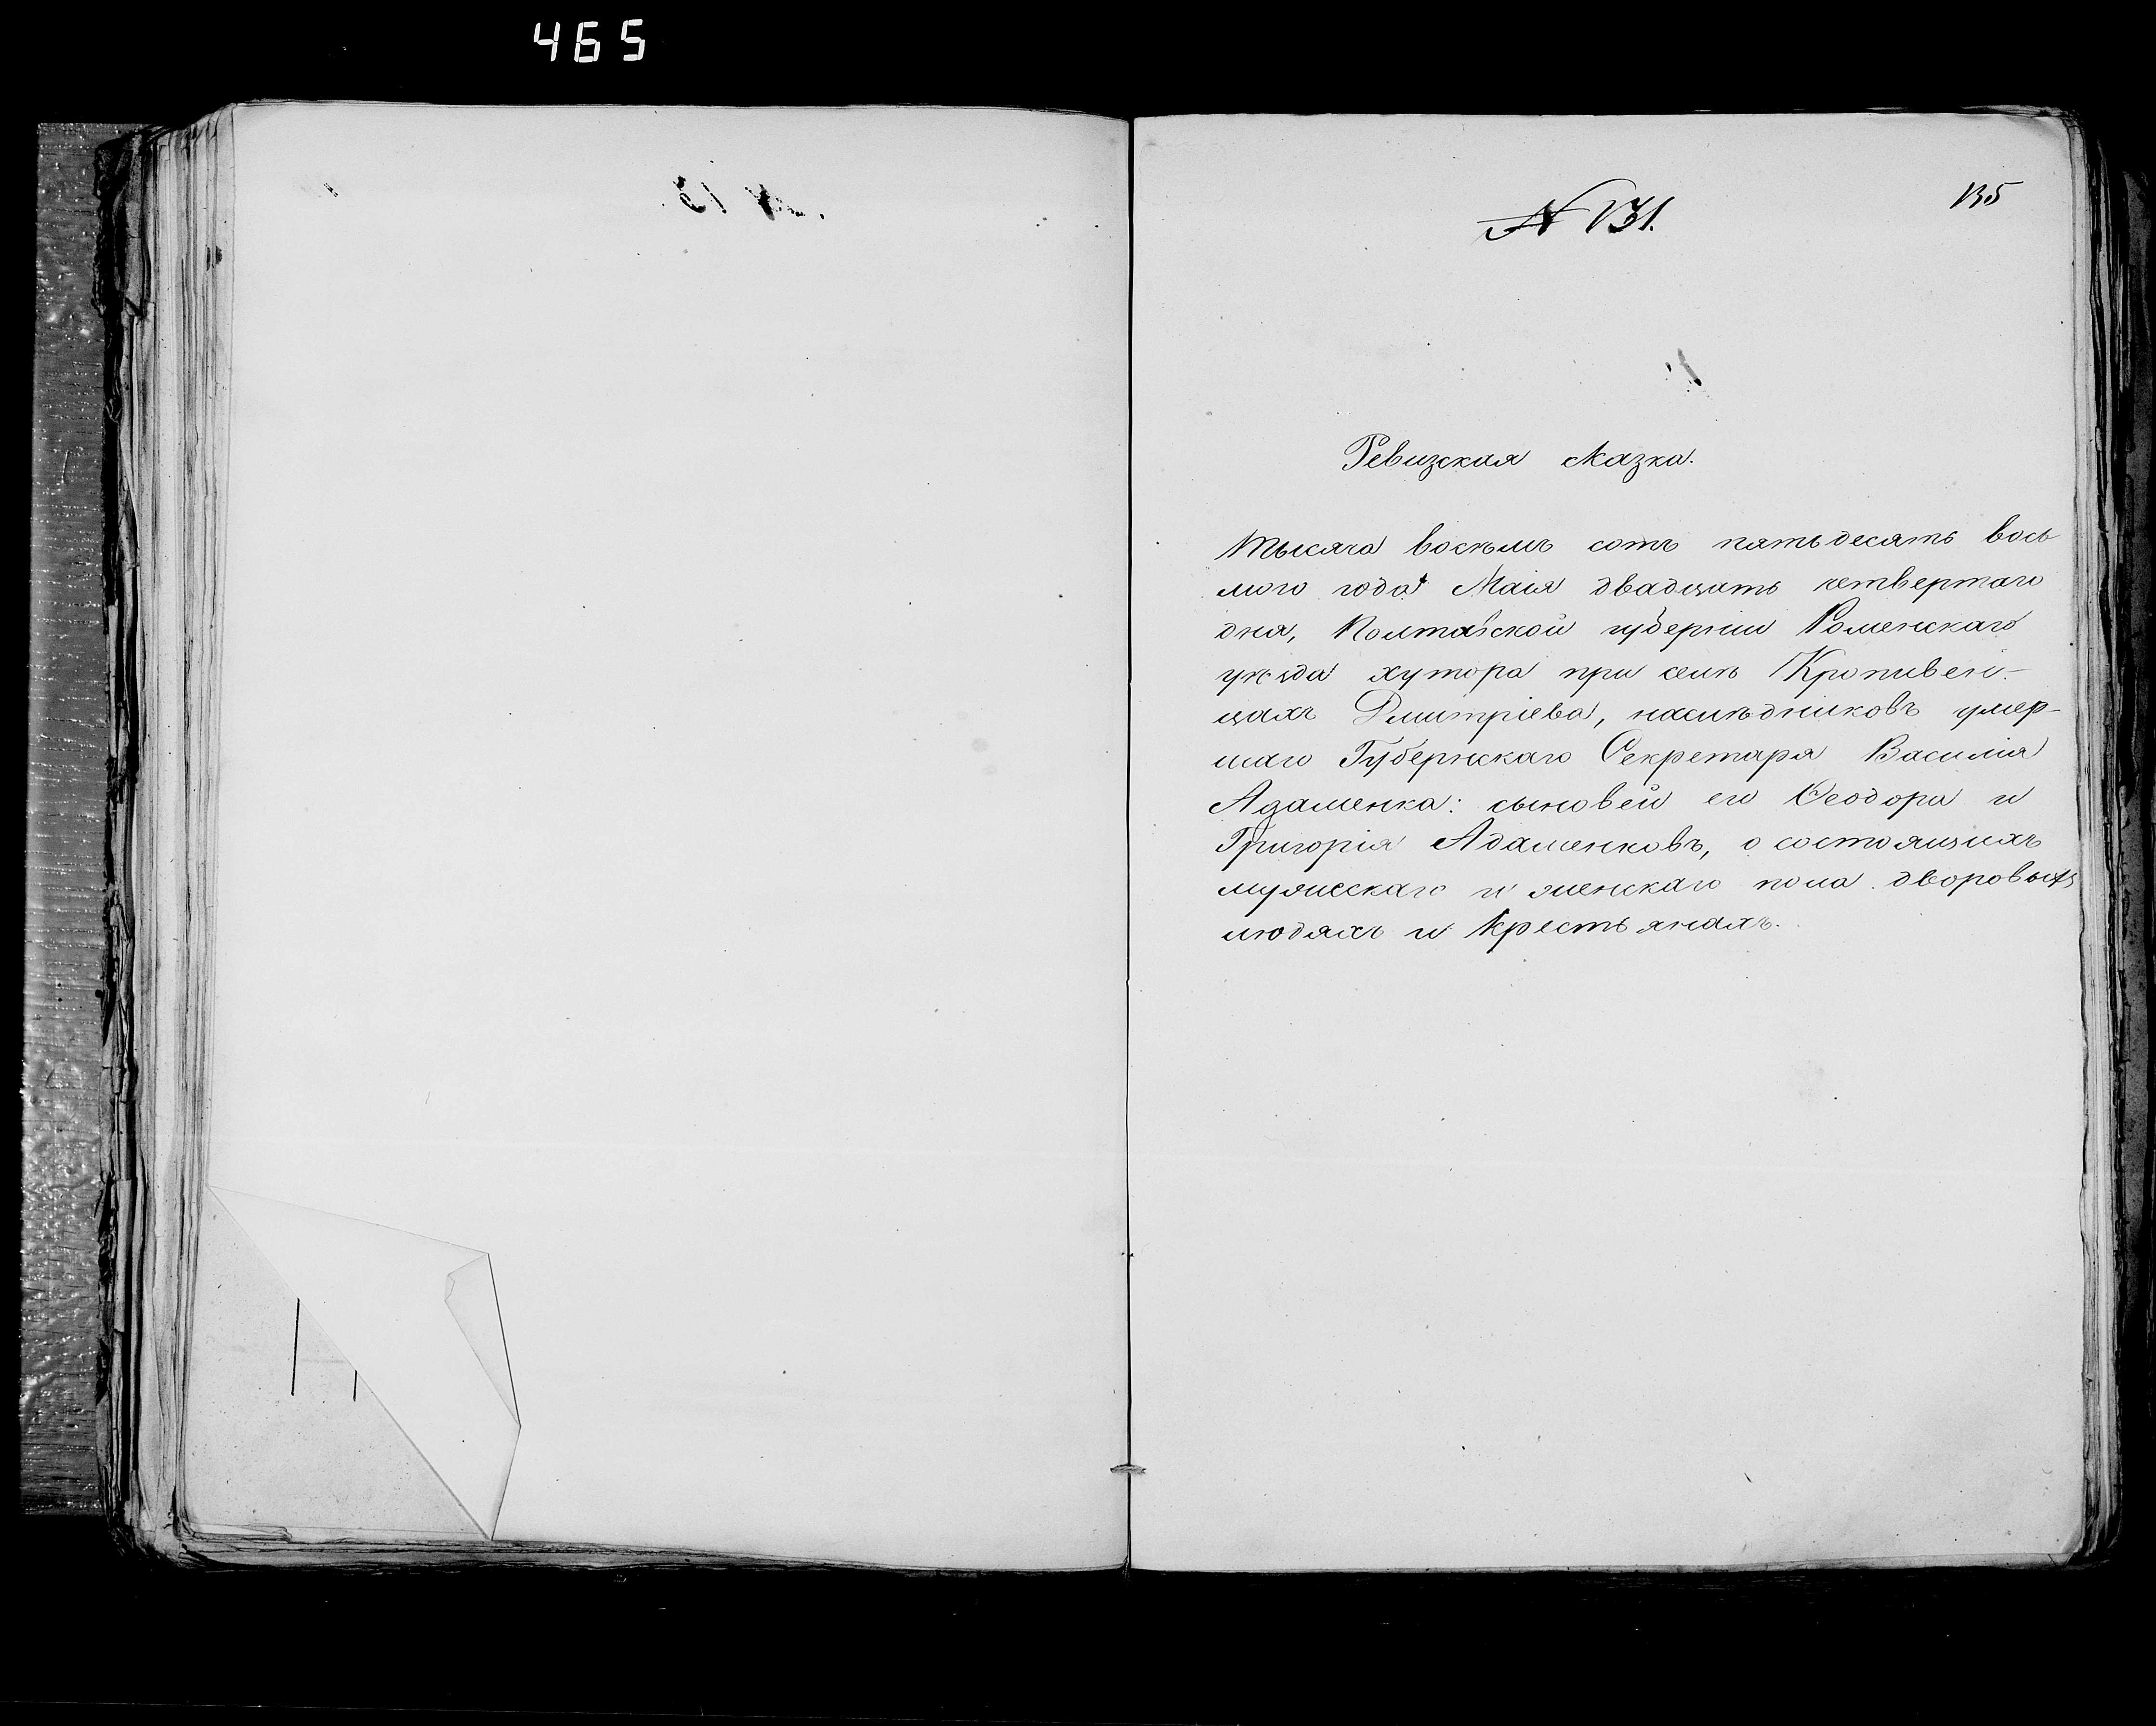 465
135
N 131.
Ревизская сказка.
Тысяча восемъ сотъ пятьдесятъ вось
мого года Маія двадцать четвертаго
дня, Полтавской губерніи Роменскаго
уѣзда хутора при селѣ Кропивен-
цахъ Дмитріева, наслѣдниковъ умер-
шаго Губернскаго Секретаря Василія
Адаменка: сыновей его Ѳеодора и
Григорія Адаменковъ, о состоящихъ
мужескаго и женскаго пола дворовыхъ
людяхъ и крестьянахъ.